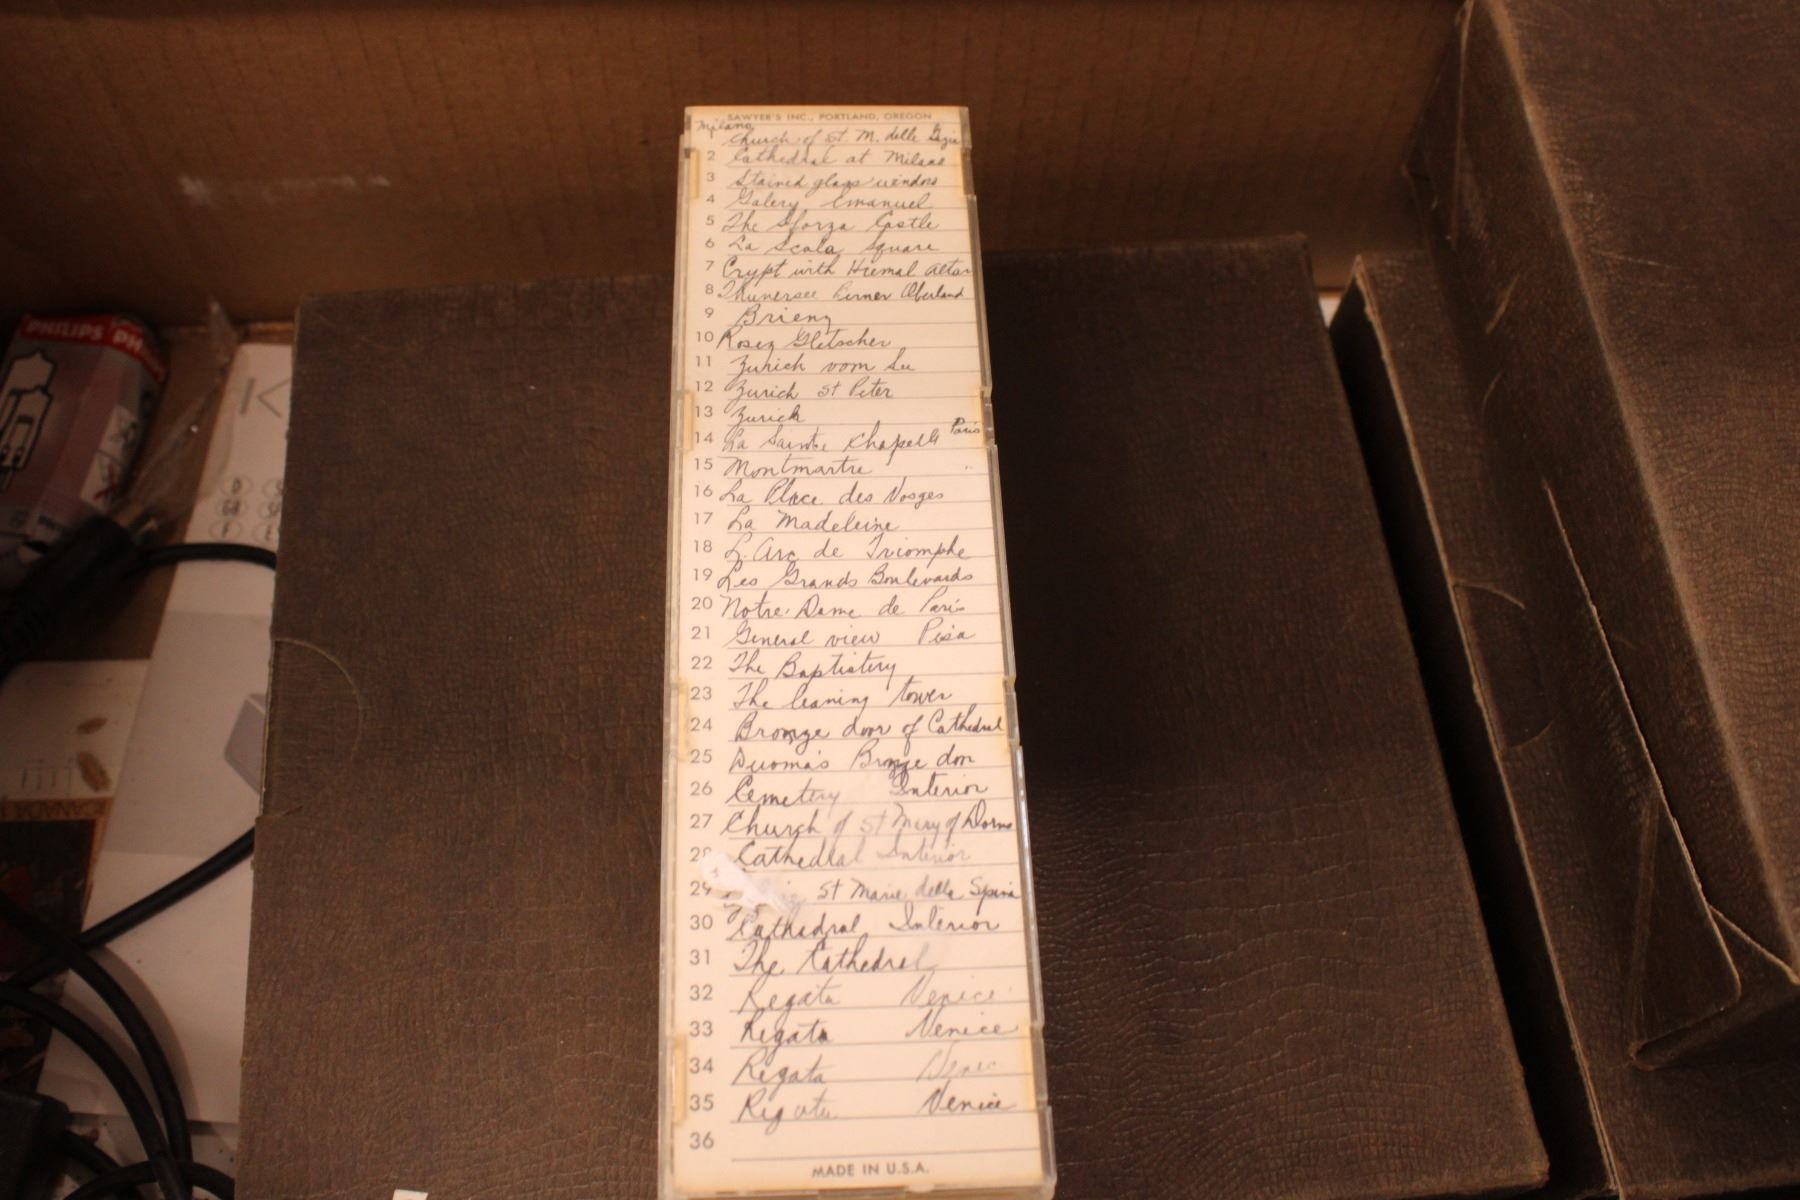 SAWYER'S INC., PORTLAND, OREGON
Milano
Church of St. M. delle
2 Cathedral at Milano
3 Stained glass windows
4 Galery Emanuel
5 The Sforza Castle
6 La Scala Square
7 Crypt with Hiemal altar
8 Thunersee Berner Oberland
9 Brienz
10 Roseg Gletscher
11 Zurich vom See
12 Zurich St Peter
13 Zurich
14 La Sainte Chapelle Paris
15 Montmartre "
16 La Place des Vosges
17 La Madeleine
18 L'Arc de Triomphe
19 Les Grands Boulevards
20 Notre-Dame de Paris
21 General view Pisa
22 The Baptistery
23 The leaning tower
24 Bronze door of Cathedral
25 Duomo's Bronze door
26 Cemetery Interior
27 Church of St Mary of
28 Cathedral Interior
29 St Marie della Spina
30 Cathedral Interior
31 The Cathedral
32 Regata Venice
33 Regata Venice
34 Regata Venice
35 Regata Venice
36
MADE IN U.S.A.
PHILIPS PH